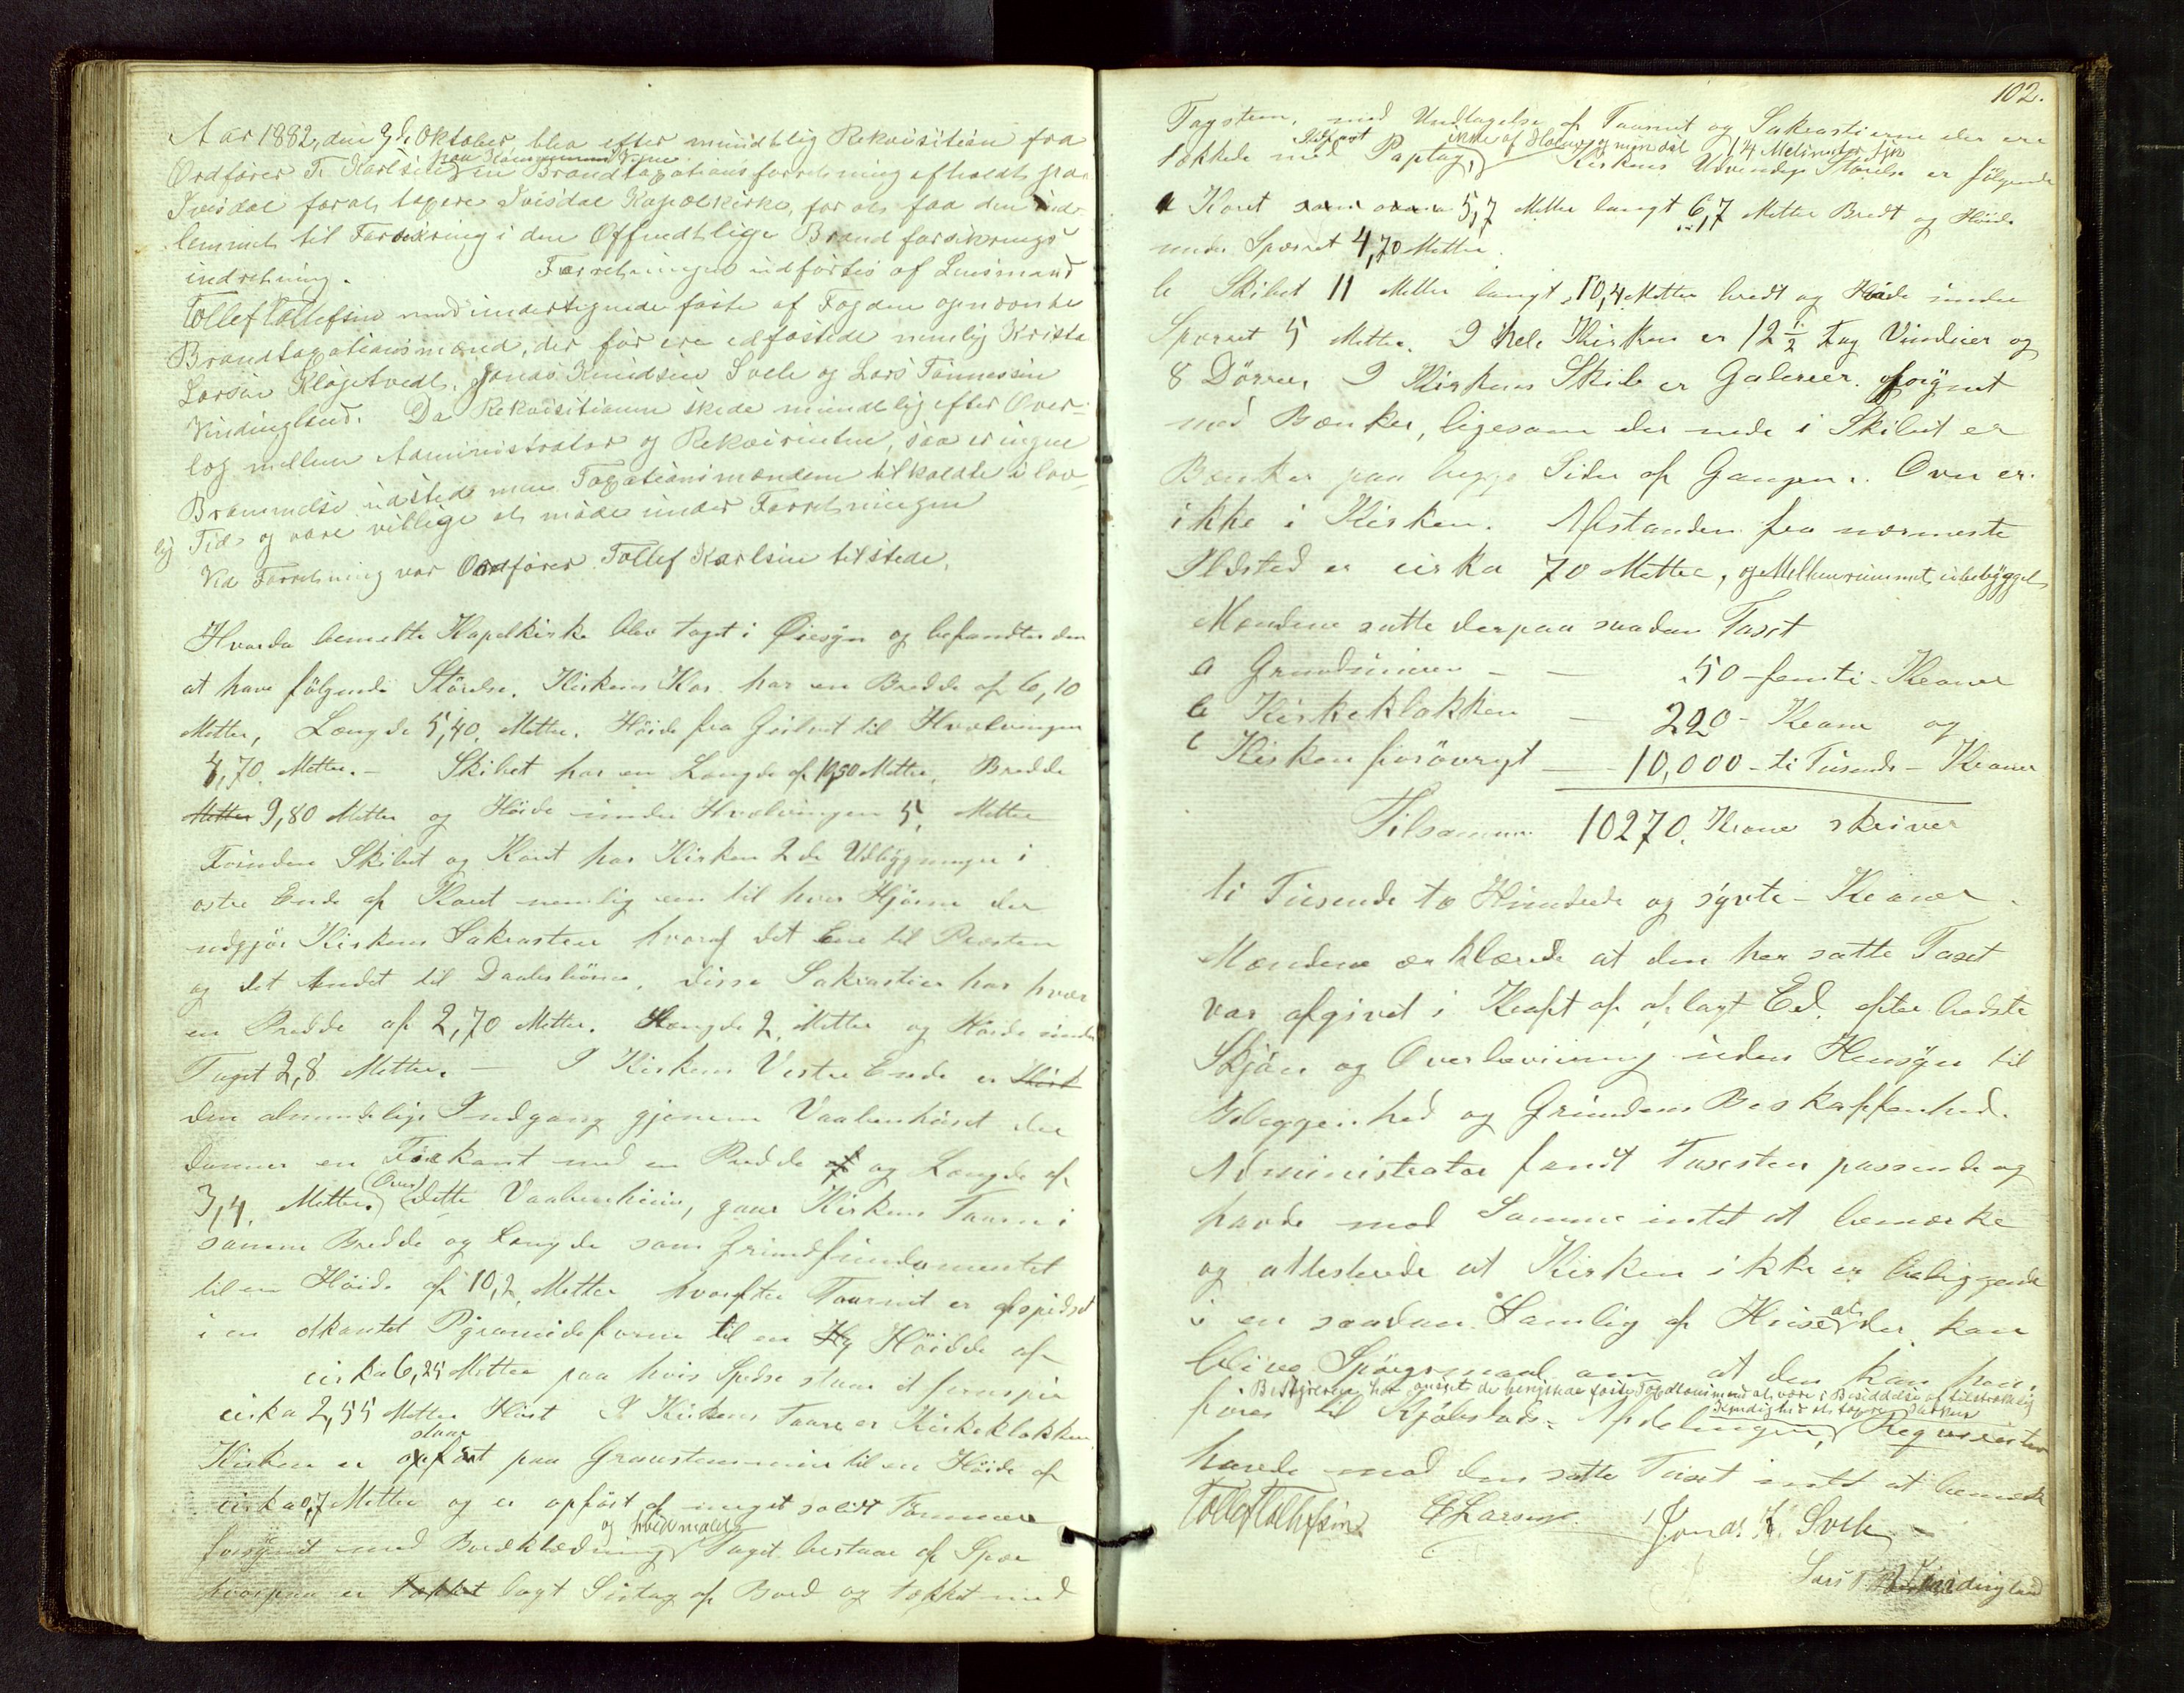 Aar 1882, den 9de Oktober, blev efter mundtlig Rekvisition fra
Ordfører T. Karlsen paa Kommunens Vegne en Brandtaxationsforretning afholdt paa
Ivisdal forat taxere Ivisdal Kapelkirke, for at faa den ind-
lemmet til Forsikring i den Offendtlige Brandforsikrings
indretning. Forretningen udførtes af Lensmand
Tollef Tollefsen med undertegnede faste af Fogden opnævnte
Brandtaxationsmænd, der før ere edfæstede nemlig Krist.
Larsen Kløgetvedt, Jonas Knudsen Svele og Lars Tønnessen
Vindingland. Da Rekvisitionen skede mundtlig efter Over-
læg mellem Administrator og Rekvirenten, saa er ingen
Berammelse udsted men Taxationsmændene tilkaldte i lov
lig Tid og vare villige at møde under Forretningen
Ved Forretning var Ordfører Tollef Karlsen tilstede.
Hvorda bemeldte Kapelkirke blev taget i Øiesyn og befandtes den
at have følgende Størelse. Kirkens Kor har en Bredde af 6,10
Metter, Længde 5,40, Metter. Høide fra Gulvet til Hvælvingen
4,70. Metter. – Skibet har en Længde af 10,50 Metter, Bredde
Metter 9,80 Metter og Høide under Hvælvingen 5, Metter
Foruden Skibet og Koret har Kirken 2de Udbygninger i
østre Ende af Koret nemlig een til hver Hjørne der
udgjør Kirkens Sakrastier hvoraf det Ene til Præsten
og det Andet til Daabsbørn, disse Sakrastier har hver
en Bredde af 2,70 Metter. Længde 2, Metter og Høide under
Taget 2,8 Metter. – I Kirkens Vestre Ende er Kirk
den almindelige Indgang gjennem Vaabenhuset der
danner en Firkant med en Bredde af og Længde af
3,4. Metter. (Over) dette Vaabenhuus, gaar Kirkens Taarn i
samme Bredde og Længde som grundfundamentet
til en Høide af 10,2, Metter hvorefter Taarnet er afspidset
i en otkantet Pyramideform til en Hø Høidde af
cirka 6,25 Metter paa hvis Spidse staar et firespir
cirka 2,55 Metter Høit I Kirkens Taarn er Kirkeklokken
Kirken er staar opført paa Graastensmuur til en Høide af
cirka 0,7 Metter og er opført af meget solidt Tømmer
forsynet med Bordklædning og hvidmalet Taget bestaar af Spær
hvorpaa er tækket lagt Sutag af Bord og tækket med
102.
Tagsten, med Undtagelse af Taarnet og Sakrastierne der ere
tækkede med Paptag, ikke af Holmø men dal 1,4 Kirkens Udvendige Størelse er følgende
a Koret som oven 5,7 Metter langt 6,7 Metter Bredt og Høide
under Spærret 4,70 Metter.
b Skibet 11 Metter langt, 10,4 Metter bredt og Høide under
Sparret 5 Metter. I hele Kirken er 12 ½ Fag Vinduer og
8 Dørrer, I Kirkens Skib er Galerier. forsynet
med Bænker, ligesom der nede i Skibet er
Bænker paa begge Sider af Gangen. Ovn er
ikke i Kirken. Afstanden fra nærmeste
Ildsted er cirka 70 Metter, og Mellemrummet ubebygget
Mændene satte derpaa saadan Taxt
a Grundmuren – – 50 – femti – Kroner
b Kirkeklokken – 220 – Krone og
c Kirken forøvrigt – 10,000 – ti Tusende – Kroner
Tilsammen 10270. Krone skriver
ti Tusende to Hundrede og sytti – Kroner.
Mændene erklærede at den her satte Taxt
var afgivet i Kraft af aflagt Ed. efter bedste
Skjøn og Overbevisning uden Hensyn til
Beleggenhed og Grundens Beskaffenhed.
Administrator fandt Taxsten passende og
havde mod Samme intet at bemærke
og attesterede at Kirken ikke er beliggende
i en saadan Samlig af Huse at der kan
blive Spørgsmaal om at den kan hen-
Bestyreren har anseet de benyttede faste Taxationsmænd at være i Besiddelse af tilstrækkelig
føres til Kjøbstads-Afdelingen, Kyndighed at taxere Kirken Requirenten
havde mod den satte Taxt intet at bemærke
Tollef Tollefsen C Larsen Jonas K. Svele
Lars T. Vindingland